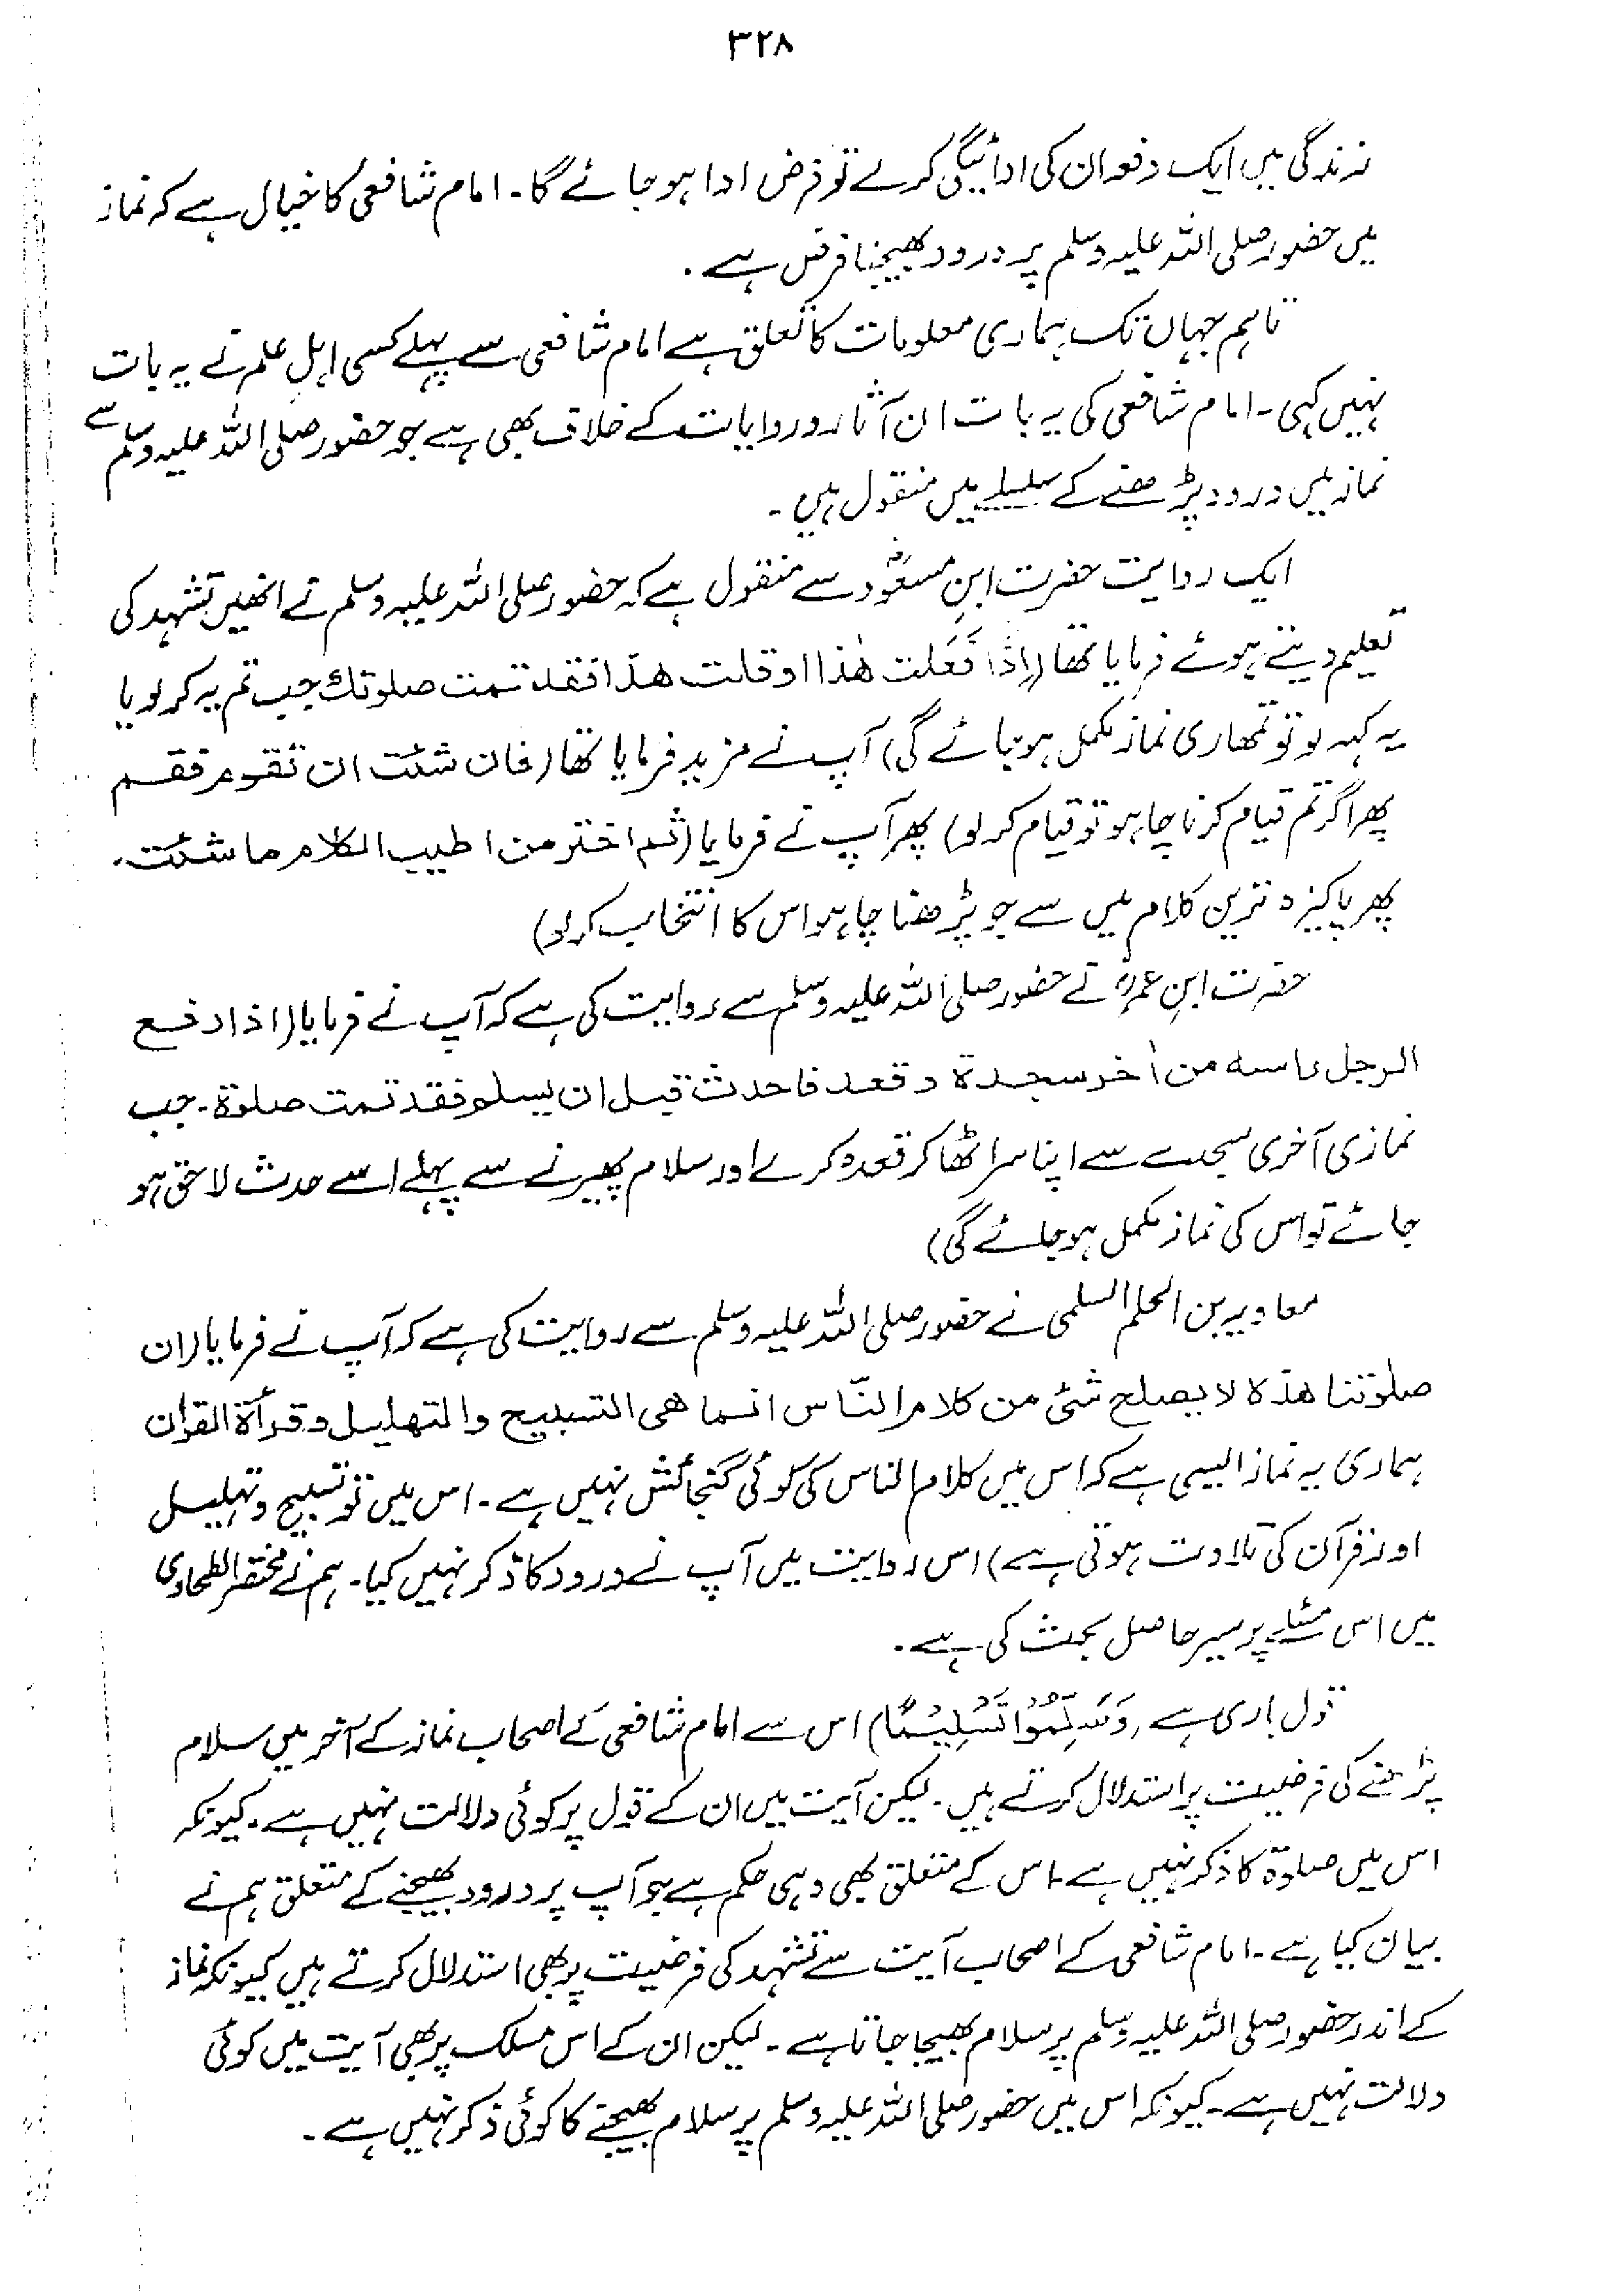 ۳۲۸
زندگی میں ایک دفعہ ان کی ادائیگی کرے تو فرض ادا ہو جائے گا۔ امام شافعی کا خیال ہے کہ نماز
میں حضور صلی اللہ علیہ وسلم پر درود بھیجنا فرض ہے۔
تاہم جہاں تک ہماری معلومات کا تعلق ہے امام شافعی سے پہلے کسی اہلِ علم نے یہ بات
نہیں کہی۔ امام شافعی کی یہ بات ان آثار و روایات کے خلاف بھی ہے جو حضور صلی اللہ علیہ وسلم سے
نماز میں درود پڑھنے کے سلسلے میں منقول ہیں۔
ایک روایت حضرت ابنِ مسعودؓ سے منقول ہے کہ حضور صلی اللہ علیہ وسلم نے انھیں تشہد کی
تعلیم دیتے ہوئے فرمایا تھا (اِذَا فَعَلت ھٰذا او قلت ھذا فقد تمت صلوتك جب تم یہ کر لو یا
یہ کہہ لو تو تمھاری نماز مکمل ہو جائے گی) آپ نے مزید فرمایا تھا (فان شئت ان تقوم فقم
پھر اگر تم قیام کرنا چاہو تو قیام کر لو) پھر آپ نے فرمایا (ثم اختر من اطیب الکلام ما شئت۔
پھر پاکیزہ ترین کلام میں سے جو پڑھنا چاہو اس کا انتخاب کر لو)
حضرت ابنِ عمرؓ نے حضور صلی اللہ علیہ وسلم سے روایت کی ہے کہ آپ نے فرمایا (اذا رفع
الرجل راسه من اٰخر سجدة و قعد فاحدث قبل ان یسلم فقد تمت صلوة۔ جب
نمازی آخری سجدے سے اپنا سر اٹھا کر قعدہ کرے اور سلام پھیرنے سے پہلے اسے حدث لاحق ہو
جائے تو اس کی نماز مکمل ہو جائے گی)
معاویہ بن الحلم السلمی نے حضور صلی اللہ علیہ وسلم سے روایت کی ہے کہ آپ نے فرمایا (ان
صلوتنا ھذہ لا یصلح شئ من کلام النّاس انما ھی التسبیح والتھلیل و قرأة القراٰن
ہماری یہ نماز ایسی ہے کہ اس میں کلام الناس کی کوئی گنجائش نہیں ہے۔ اس میں تو تسبیح و تہلیل
اور قرآن کی تلاوت ہوتی ہے) اس روایت میں آپ نے درود کا ذکر نہیں کیا۔ ہم نے مختصر الطحاوی
میں اس مسئلے پر سیر حاصل بحث کی ہے۔
قول باری ہے (وَسَلِّمُوْا تَسْلِیْمًا) اس سے امام شافعی کے اصحاب نماز کے آخر میں سلام
پڑھنے کی فرضیت پر استدلال کرتے ہیں۔ لیکن آیت میں ان کے قول پر کوئی دلالت نہیں ہے۔ کیونکہ
اس میں صلوٰۃ کا ذکر نہیں ہے۔ اس کے متعلق بھی وہی حکم ہے جو آپ پر درود بھیجنے کے متعلق ہم نے
بیان کیا ہے۔ امام شافعی کے اصحاب آیت سے تشہد کی فرضیت پر بھی استدلال کرتے ہیں کیونکہ نماز
کے اندر حضور صلی اللہ علیہ وسلم پر سلام بھیجا جاتا ہے۔ لیکن ان کے اس مسلک پر بھی آیت میں کوئی
دلالت نہیں ہے۔ کیونکہ اس میں حضور صلی اللہ علیہ وسلم پر سلام بھیجنے کا کوئی ذکر نہیں ہے۔